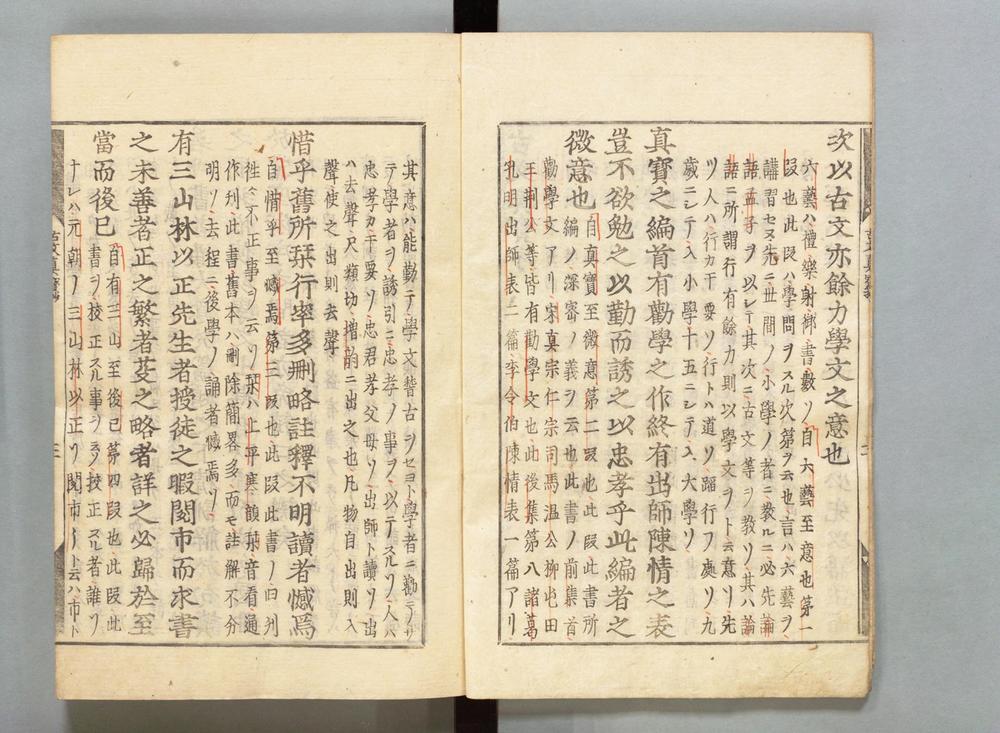 次以古文亦餘力學文之意也
六藝ハ禮樂射御書數ソ自六藝至意也第一
段也此段ハ學問ヲスル次第ヲ云也言ハ六藝ヲ
講習セヌ先ニ世間ノ小學ノ者ニ教ルニ必先論
語孟子ヲ以レテ其次ニ古文等ヲ教ソ其ハ論
語ニ所謂行有餘力則以學文ヲト云意ソ先
ツ人ハ行カ干要ソ行トハ道ソ蹈行フ處ソ九
歳ニシテ入小學十五ニシテ入大學ソ
真寳之編首有勸學之作終有出師陳情之表
豈不欲勉之以勤而誘之以忠孝乎此編者之
微意也自真寳至微意第二段也此段此書所
編ノ深審ノ義ヲ云也此書ノ前集首
勸學文アリ宋真宗仁宗司馬温公柳屯田
王荆公等皆有勸學文也此後集第八諸葛
孔明出師表二篇李令伯陳情表一篇アリ
其意ハ能勤テ學文嗜古ヲセヨト學者ニ勸
テ學者ヲ誘引ニ忠孝ノ事ヲ以テスルソ人ハ
忠孝カ干要ソ忠君孝父母ソ出師ト讀ソ出
ハ去聲尺類切増韵ニ出之也凡物自出則入
聲使之出則去聲
惜乎舊所栞行率多刪略註釋不明讀者憾焉
自惜乎至憾焉第三段也此段此書ノ旧列
徃々不正事ヲ云ソ栞ハ上平寒韻栞音看通
作刋此書舊本ハ刪除簡畧多而モ註解不分
明ソ去程ニ後學ノ誦者憾焉ソ
有三山林以正先生者授徒之暇閲市而求書
之未善者正之繁者芟之略者詳之必歸於至
當而後已自有三山至後已第四段也此段此
書ヲ校正スル事ヲ云ソ校正スル者誰ソ
十レハ元朝ノ三山林以正ソ閲市ートハ市ト